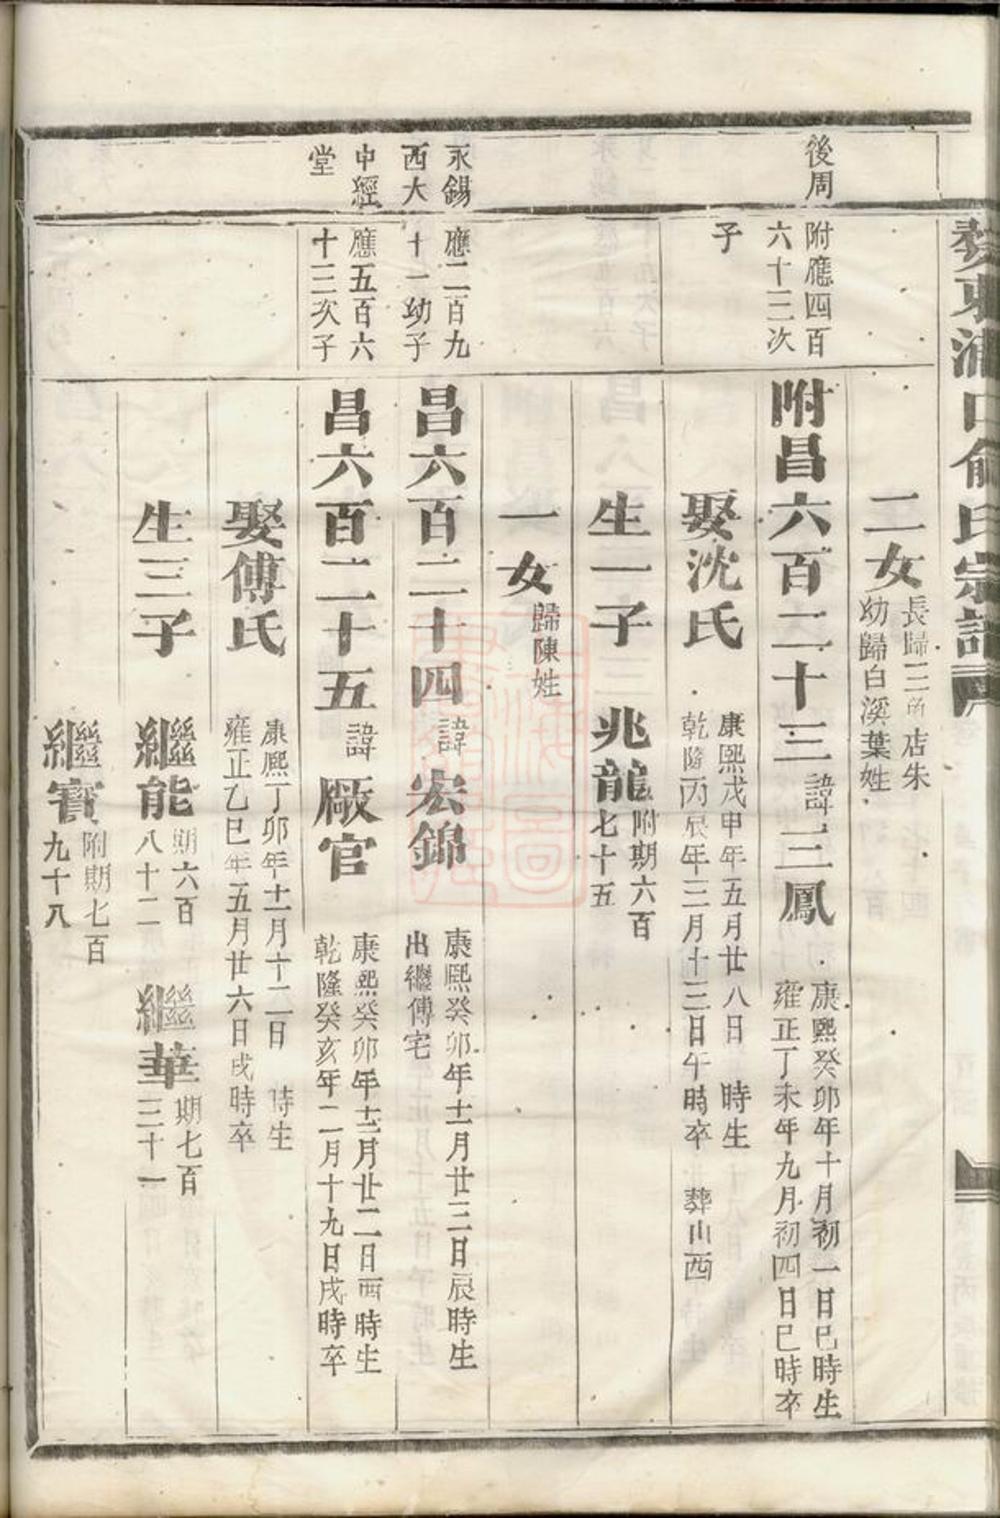 婺東浦口俞氏宗譜
二女
長歸三角店朱
幼歸白溪葉姓
後周
附應四百
六十三次
子
附昌六百二十三 諱三鳳
康熙癸卯年十月初一日巳時生
雍正丁未年九月初四日巳時卒
娶沈氏
康熙戊申年五月廿八日 時生
乾隆丙辰年三月十三日午時卒 葬山西
生一子 兆龍
附期六百
七十五
一女
歸陳姓
永錫
西大
應二百九
十一幼子
昌六百二十四 諱宏錦
康熙癸卯年十一月廿三日辰時生
出繼傅宅
中經
堂
應五百六
十三次子
昌六百二十五 諱廠官
康熙癸卯年十二月廿二日酉時生
乾隆癸亥年二月十九日戌時卒
娶傅氏
康熙丁卯年十一月十二日 時生
雍正乙巳年五月廿六日戌時卒
生三子 繼能
期六百
八十二
繼華
期七百
三十一
繼寶
附期七百
九十八